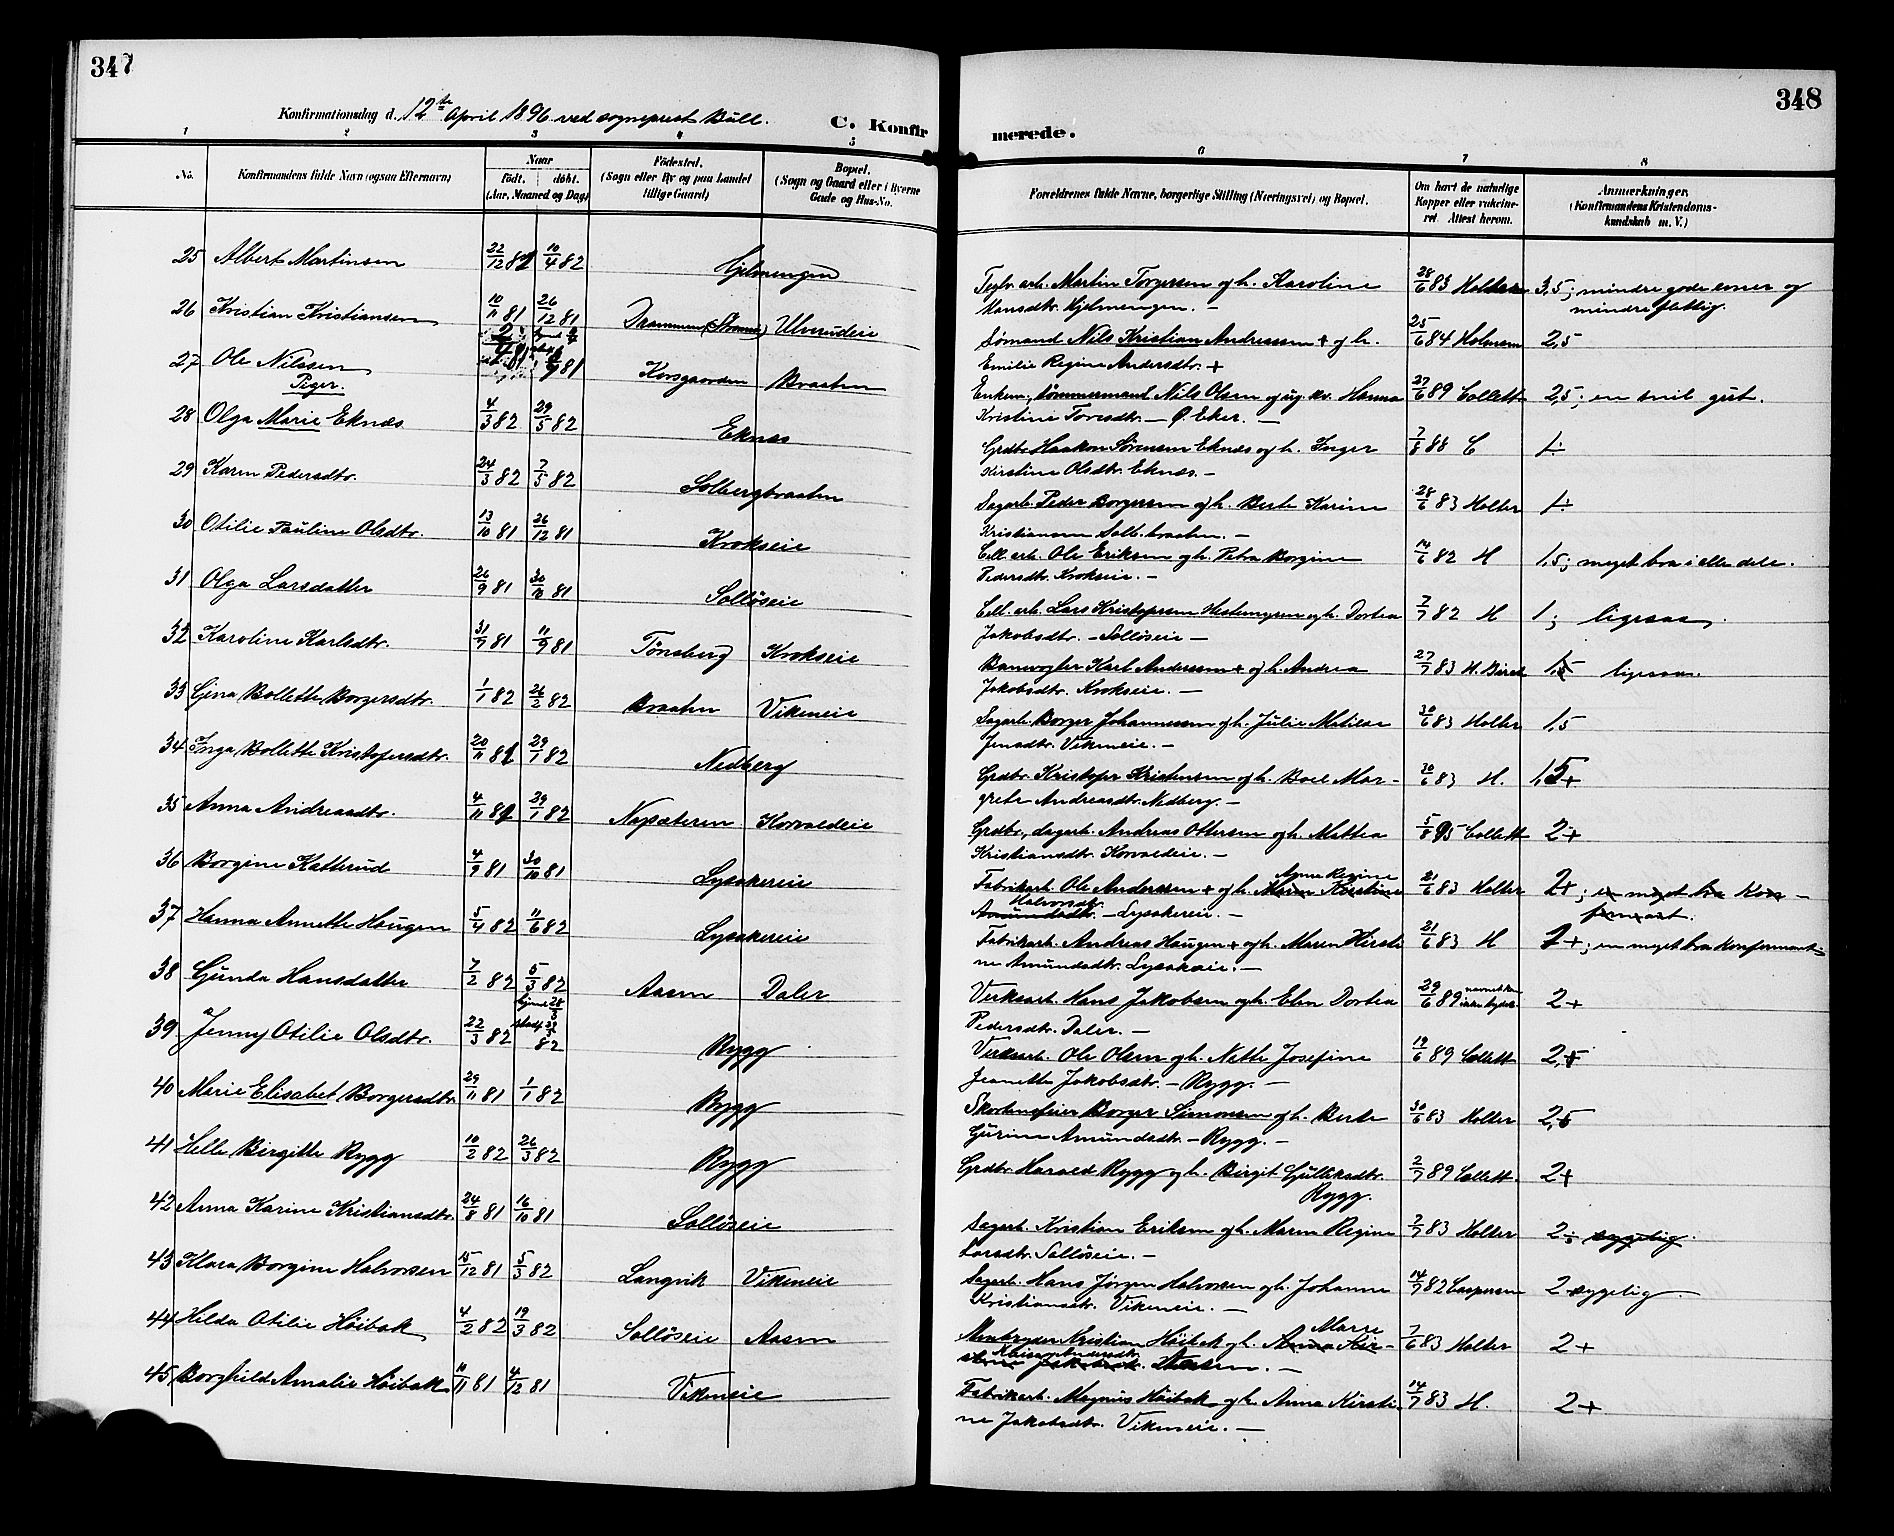 347
348
Konfirmationsdag d. 12te April 1896 ved sogneprest Bull.
C. Konfir
merede.
1 2 3 4 5
6 7 8
No.
Konfirmandens fulde Navn (ogsaa Efternavn)
Naar
født. døbt.
(Aar, Maaned og Dag)
Fødested.
(Sogn eller By og paa Landet tillige Gaard)
Bopæl.
(Sogn og Gaard eller i Byerne Gade og Hus-No.
Forældrenes fulde Navne, borgerlige Stilling (Næringsvei) og Bopæl.
Om havt de naturlige Kopper eller vakcineret. Attest herom.
Anmerkninger.
(Konfirmandens Kristendomskundskab m. V.)
25 Albert Martinsen 22/12 82 10/4 82 Hjelmengen
Teglv. arb. Martin Torgersen og h. Karoline 28/6 83 Holter 3,5; mindre gode evner og
Hansdtr. Hjelmengen. — mindre flittig.
26 Kristian Kristiansen 10/11 81 26/12 81 Drammen (Strømsø) Ulverudeie
Sømand Nils Kristian Andreassen + og h. 25/6 84 Holmsen 2,5
Emilie Regine Andersdtr. +
27 Ole Nilssen 81 Korsgaarden Braaten
Piger.
Enkem., tømmermand Nils Olsen og ug. kv. Hanna 27/6 89 Collett 2,5; en snil gut.
Kristine Toresdtr. — Ø. Eker. —
28 Olga Marie Eknæs 4/3 82 29/5 82 Eknæs
Grdbr. Haakon Sørensen Eknæs og h. Inger 7/8 88 C 1÷
Kirstine Olsdtr. Eknæs. —
29 Karen Pedersdtr. 24/3 82 7/5 82 Solbergbraaten
Sagarb. Peder Borgersen og h. Berte Karine 28/6 83 Holter 1÷
Kristiansen Solb. braaten. —
30 Otilie Pauline Olsdtr. 13/10 81 26/12 81 Krokseie
Cell. arb. Ole Eriksen og h. Petra Borgine 14/6 82 H 1,5; meget bra i alle dele.
Pedersdtr. Krokseie. —
31 Olga Larsdatter 26/9 81 30/10 81 Solløseie
Cell. arb. Lars Kristofersen Hestengen og h. Dortea 7/7 82 H 1; ligesaa.
Jakobsdtr. — Solløseie —
32 Karoline Karlsdtr. 31/7 81 11/9 81 Tønsberg Krokseie
Banevogter Karl Andersen + og h. Andrea 27/7 83 H. Birch 1,5 ligesaa.
Jakobsdtr. Krokseie. —
33 Gina Bollette Borgersdtr. 1/1 82 26/2 82 Braaten Vikeneie
Sagarb. Borger Johannesen og h. Julie Matilde 30/6 83 Holter 1,5
Jensdtr. Vikeneie. —
34 Inga Bollette Kristofersdtr. 20/11 81 29/1 82 Nedberg
Grdbr. Kristofer Kristensen og h. Boel Mar- 30/6 83 H. 1,5+
grete Andreasdtr. Nedberg. —
35 Anna Andreasdtr. 4/11 81 29/1 82 Napsæteren Horvaldeie
Grdbr., dagarb. Andreas Ottersen og h. Mattea 5/8 95 Collett 2+
Kristiansdtr. Horvaldeie. —
36 Borgine Katterud 4/9 81 30/10 81 Lysakereie
Anne Regine
Fabrikarb. Ole Anderssen + og h. Maren Kirstine 21/6 83 Holter 2+; en meget bra kon-
Halvorsdtr.
Amundsdtr. — Lysakereie. — firmant.
37 Hanna Annette Haugen 5/4 82 11/6 82 Lysakereie
Fabrikarb. Andreas Haugen + og h. Maren Kirsti- 21/6 83 H 2+; en meget bra konfirmant
ne Amundsdtr. Lysakereie. —
38 Gunda Hansdatter 7/2 82 5/3 82 Aasen Daler
Verksarb. Hans Jakobsen og h. Elen Dortea 29/6 89 2+
Pedersdtr. Daler. —
39 Jenny Otilie Olsdtr. 22/3 82 hjemd. 28/3 stadf. 82 Rygg
Verksarb. Ole Olsen og h. Nette Josefine 19/6 89 Collett 2,5
Jeanette Jakobsdtr. — Rygg. —
40 Marie Elisabet Borgersdtr. 29/11 81 1/1 82 Rygg
Skorstensfeier Borger Simonsen og h. Berte 30/6 83 Holter 2,5
Gurine Amundsdtr. — Rygg. —
41 Helle Birgitte Rygg 10/2 82 26/3 82 Rygg
Grdbr. Harald Rygg og h. Birgit Gulliksdtr. 2/7 89 Collett. 2+
Rygg.
42 Anna Karine Kristiansdtr. 24/8 81 16/10 81 Solløseie
Sagarb. Kristian Eriksen og h. Maren Regine 7/7 83 Holter 2; sygelig.
Larsdtr. Solløseie. —
43 Klara Borgine Halvorsen 15/12 81 5/3 82 Langvik Vikeneie
Sagarb. Hans Jørgen Halvorsen og h. Johanne 14/7 82 Caspersen 2 sygelig.
Kristiansdtr. Vikeneie. —
44 Hilda Otilie Höibak 4/2 82 19/3 82 Solløseie Aasen
Marie
Kristian Höibak og h. Anna Kir- 7/6 83 Holter 2+
stine Jakobsdtr. Aasen. —
45 Borghild Amalie Höibak 10/11 81 4/12 81 Vikeneie
Fabrikarb. Magnus Höibak og h. Anna Kirsti- 14/7 83 H. 2+
ne Jakobsdtr. Vikeneie. —